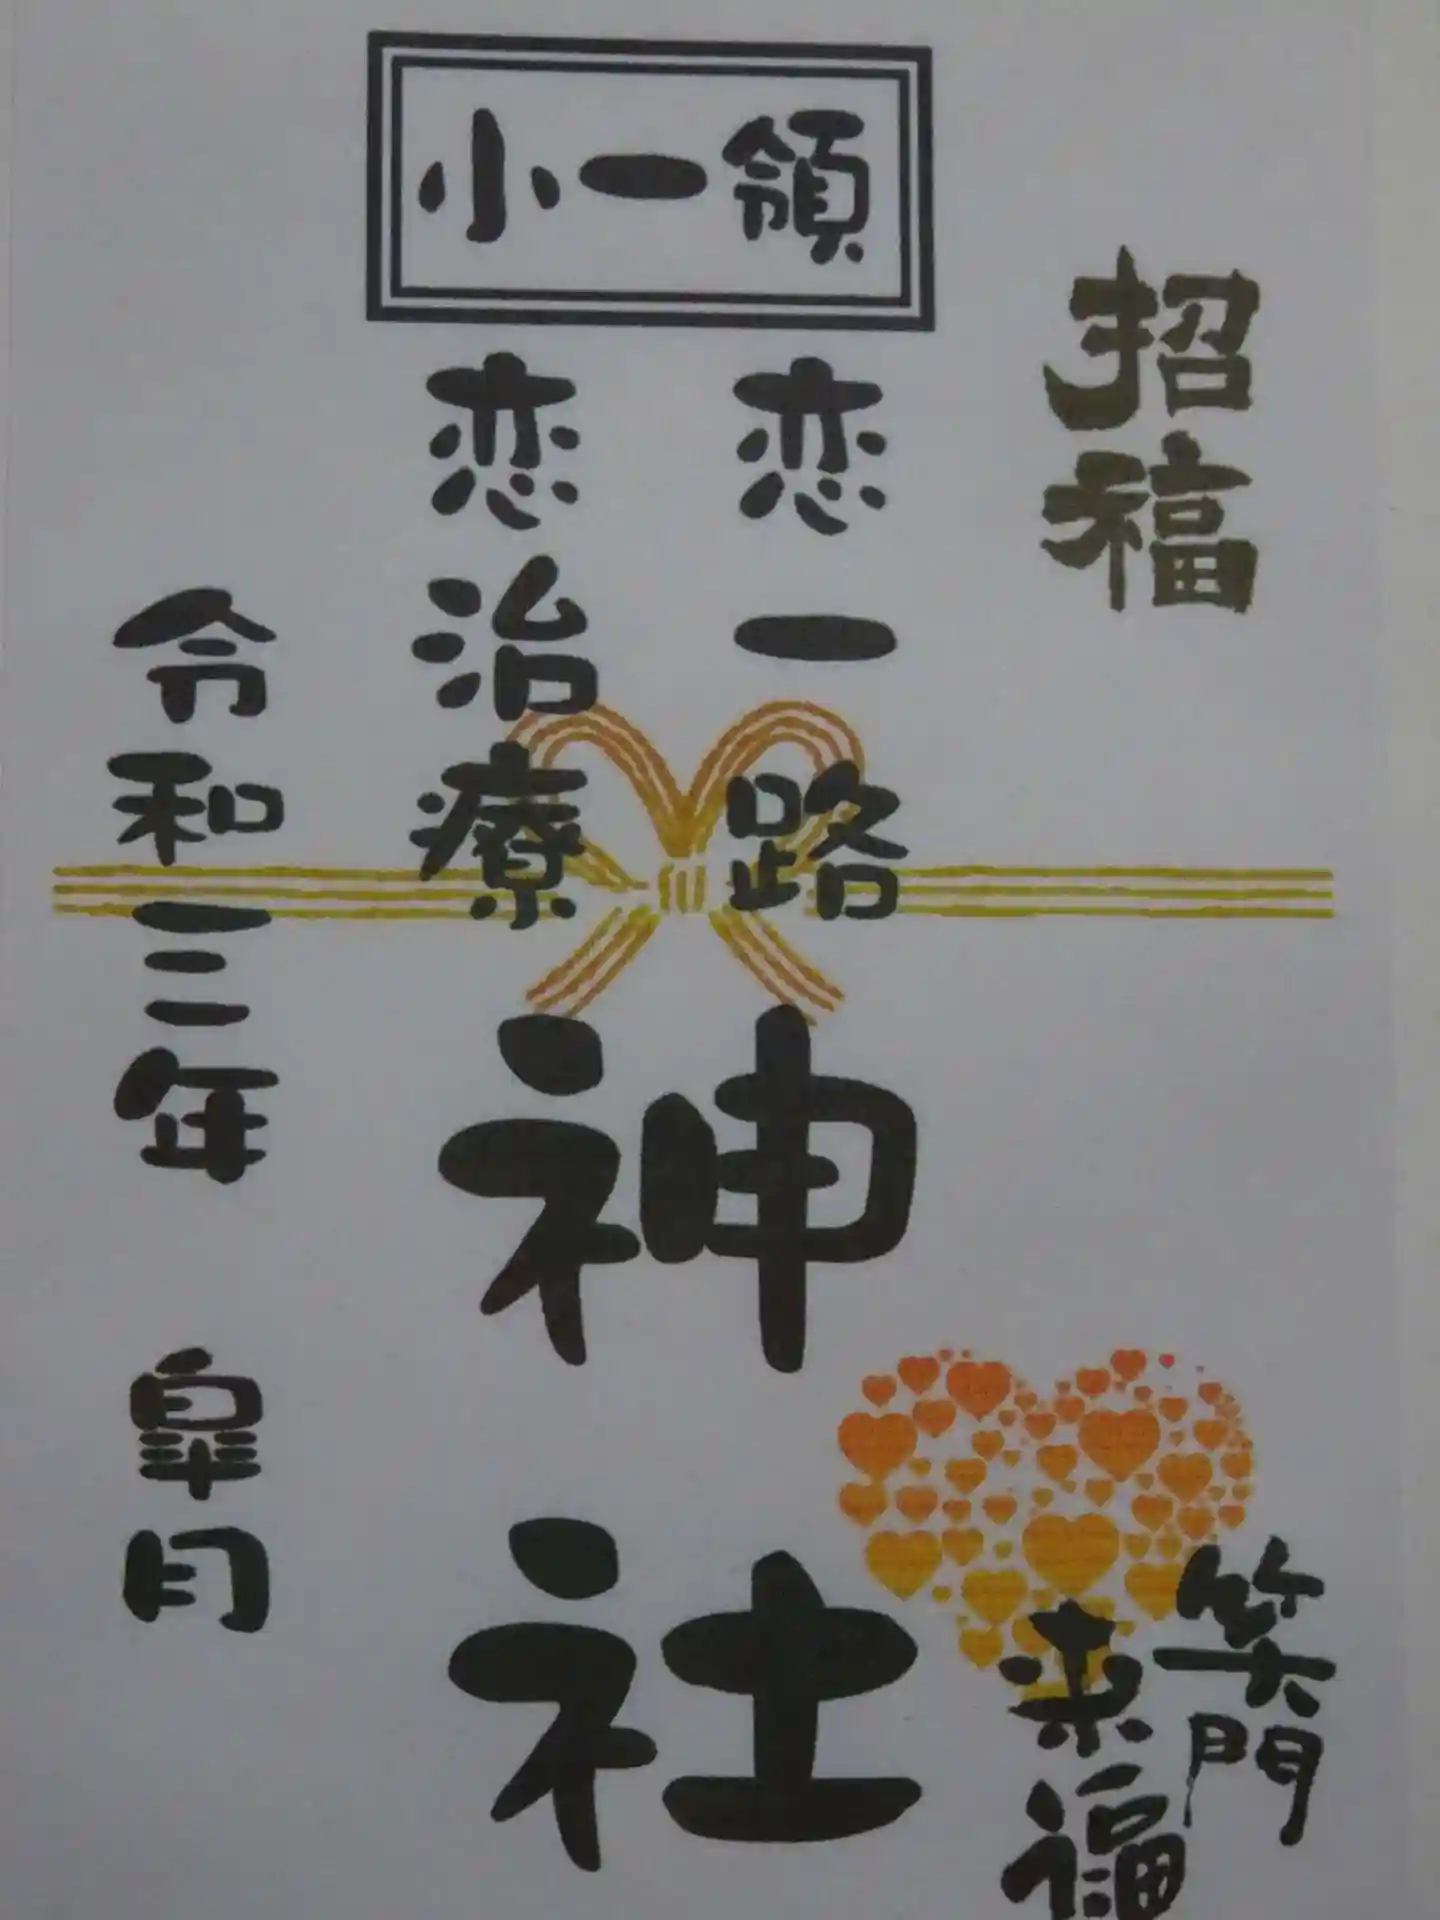 小一領
招福
恋一路
恋治療
神社
令和三年 皐月
笑門
来福